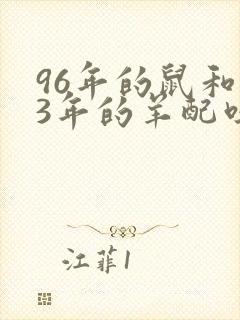 96年的鼠和
3年的羊配
江菲1